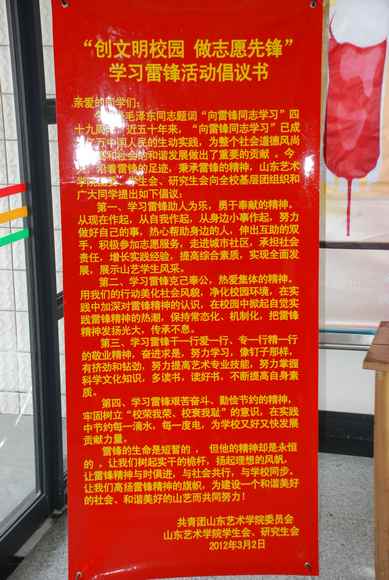 “创文明校园 做志愿先锋”
学习雷锋活动倡议书
亲爱的同学们：
毛泽东同志题词“向雷锋同志学习”四
十九周年，近五十年来，“向雷锋同志学习”已成
万中国人民的生动实践，为整个社会道德风尚
和社会的和谐发展做出了重要的贡献。今
沿着雷锋的足迹，秉承雷锋的精神，山东艺术
学院 学生会、研究生会向全校基层团组织和
广大同学提出如下倡议：
第一、学习雷锋助人为乐，勇于奉献的精神。
从现在作起，从自我作起，从身边小事作起，努力
做好自己的事，热心帮助身边的人，伸出互助的双
手，积极参加志愿服务，走进城市社区，承担社会
责任，增长实践经验，提高综合素质，实现全面发
展，展示山艺学生风采。
第二、学习雷锋克己奉公，热爱集体的精神。
用我们的行动美化社会风貌，净化校园环境，在实
践中加深对雷锋精神的认识，在校园中掀起自觉实
践雷锋精神的热潮，保持常态化、机制化，把雷锋
精神发扬光大，传承不息。
第三、学习雷锋干一行爱一行、专一行精一行
的敬业精神，奋进求是，努力学习，像钉子那样，
有挤劲和钻劲，努力提高艺术专业技能，努力掌握
科学文化知识，多读书，读好书，不断提高自身素
质。
第四、学习雷锋艰苦奋斗、勤俭节约的精神，
牢固树立“校荣我荣、校衰我耻”的意识，在实践
中节约每一滴水，每一度电，为学校又好又快发展
贡献力量。
雷锋的生命是短暂的， 但他的精神却是永恒
的，让我们树起实干的桅杆，扬起理想的风帆，
让雷锋精神与时俱进，与社会共行，与学校同步。
让我们高扬雷锋精神的旗帜，为建设一个和谐美好
的社会、和谐美好的山艺而共同努力！
共青团山东艺术学院委员会
山东艺术学院学生会、研究生会
2012年3月2日